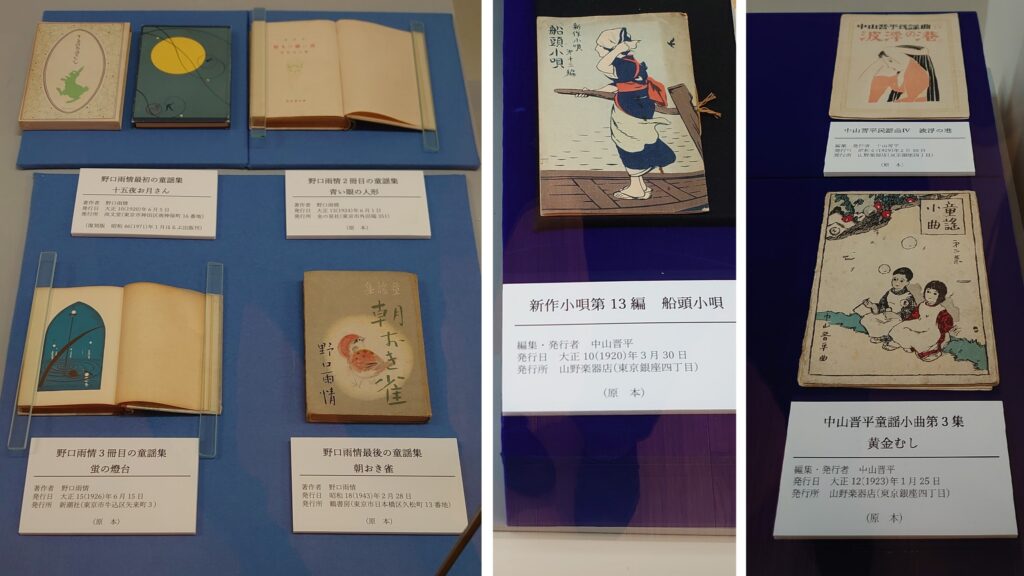 野口雨情最初の童謡集
十五夜お月さん
著者名 野口雨情
発行日 大正10(1920)年6月5日
発行所 尚文堂(東京市神田区南神保町16番地)
(復刻版 昭和46(1971)年1月ほるぷ出版刊)
野口雨情2冊目の童謡集
青い眼の人形
著者名 野口雨情
発行日 大正13(1924)年6月1日
発行所 金の星社(東京市外田端351)
(原 本)
童謡集
朝おき雀
野口雨情
野口雨情3冊目の童謡集
蛍の燈台
著者名 野口雨情
発行日 大正15(1926)年6月15日
発行所 新潮社(東京市牛込区矢来町3)
(原 本)
野口雨情最後の童謡集
朝おき雀
著者名 野口雨情
発行日 昭和18(1943)年2月28日
発行所 鶴書房(東京市日本橋区久松町13番地)
(原 本)
新作小唄
第十三編
船頭小唄
新作小唄第13編 船頭小唄
編集・発行者 中山晋平
発行日 大正10(1920)年3月30日
発行所 山野楽器店(東京銀座四丁目)
(原 本)
中山晋平民謡曲
波浮の港
波浮の港
編集・発行者 中山晋平
発行所 山野楽器店(東京銀座四丁目)
童謡
小曲
中山晋平曲
中山晋平童謡小曲第3集
黄金むし
編集・発行者 中山晋平
発行日 大正12(1923)年1月25日
発行所 山野楽器店(東京銀座四丁目)
(原 本)